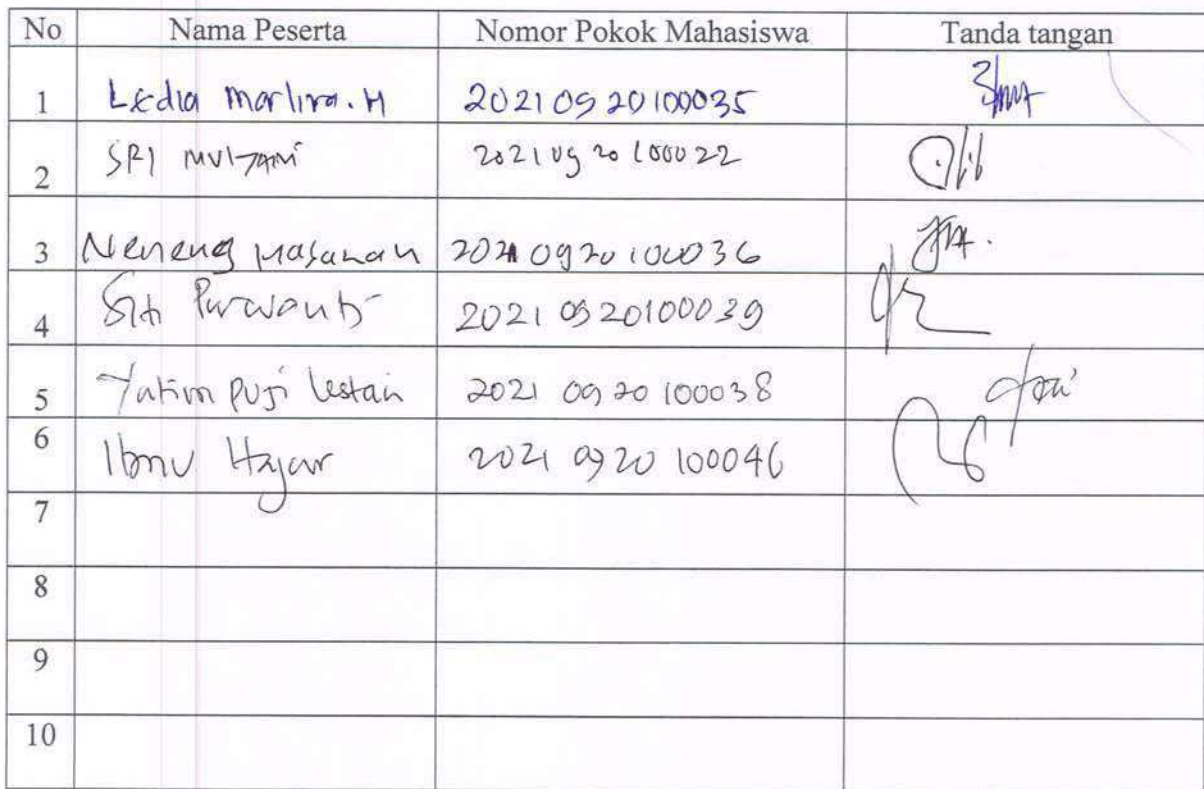 No Nama Peserta Nomor Pokok Mahasiswa Tanda tangan
1 Ledia Marlina. H 20210920100035
2 SRI MULYANI 20210920100022
3 Neneng 20210920100036
4 Siti Purwanti 20210920100039
5 Tatim puji lestari 20210920100038
6 Ibnu Hajar 20210920100046
7
8
9
10